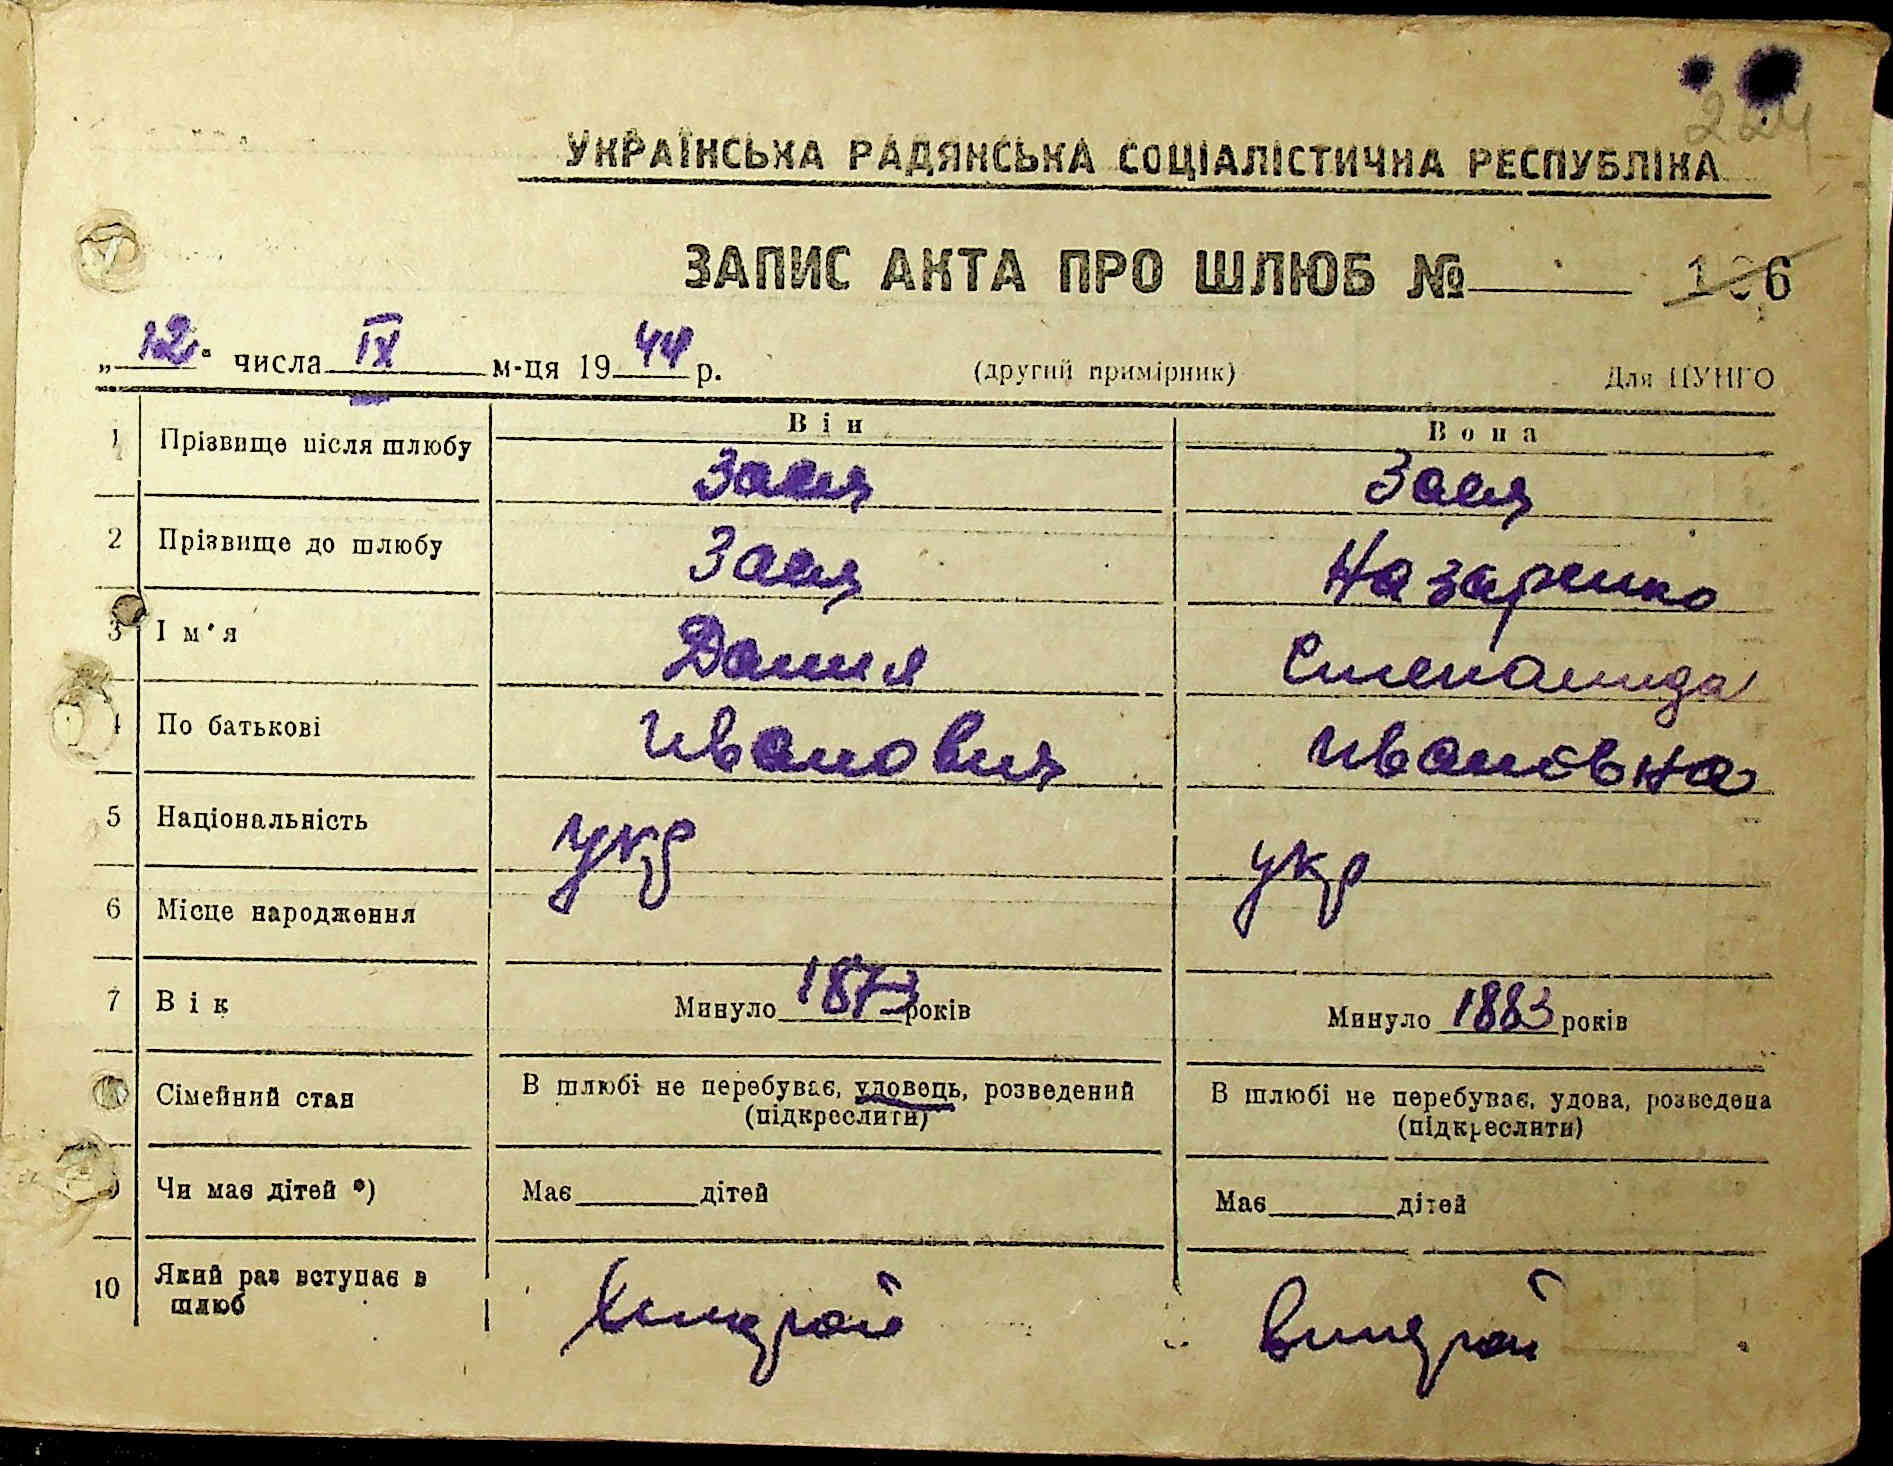 224
УКРАЇНСЬКА РАДЯНСЬКА СОЦІАЛІСТИЧНА РЕСПУБЛІКА
ЗАПИС АКТА ПРО ШЛЮБ № 196
„12“ числа IX м-ця 1944 р. (другий примірник) Для ЦУНГО
Він Вона
1 Прізвище після шлюбу Заєя Заєя
2 Прізвище до шлюбу Заєя Назаренко
3 Ім'я Данил Степанида
4 По батькові Иванович Ивановна
5 Національність укр укр
6 Місце народження
7 Вік Минуло 1873 років Минуло 1883 років
Сімейний стан В шлюбі не перебуває, удовець, розведений В шлюбі не перебуває, удова, розведена
(підкреслити) (підкреслити)
9 Чи має дітей *) Має дітей Має дітей
10 Який раз вступає в шлюб второй второй